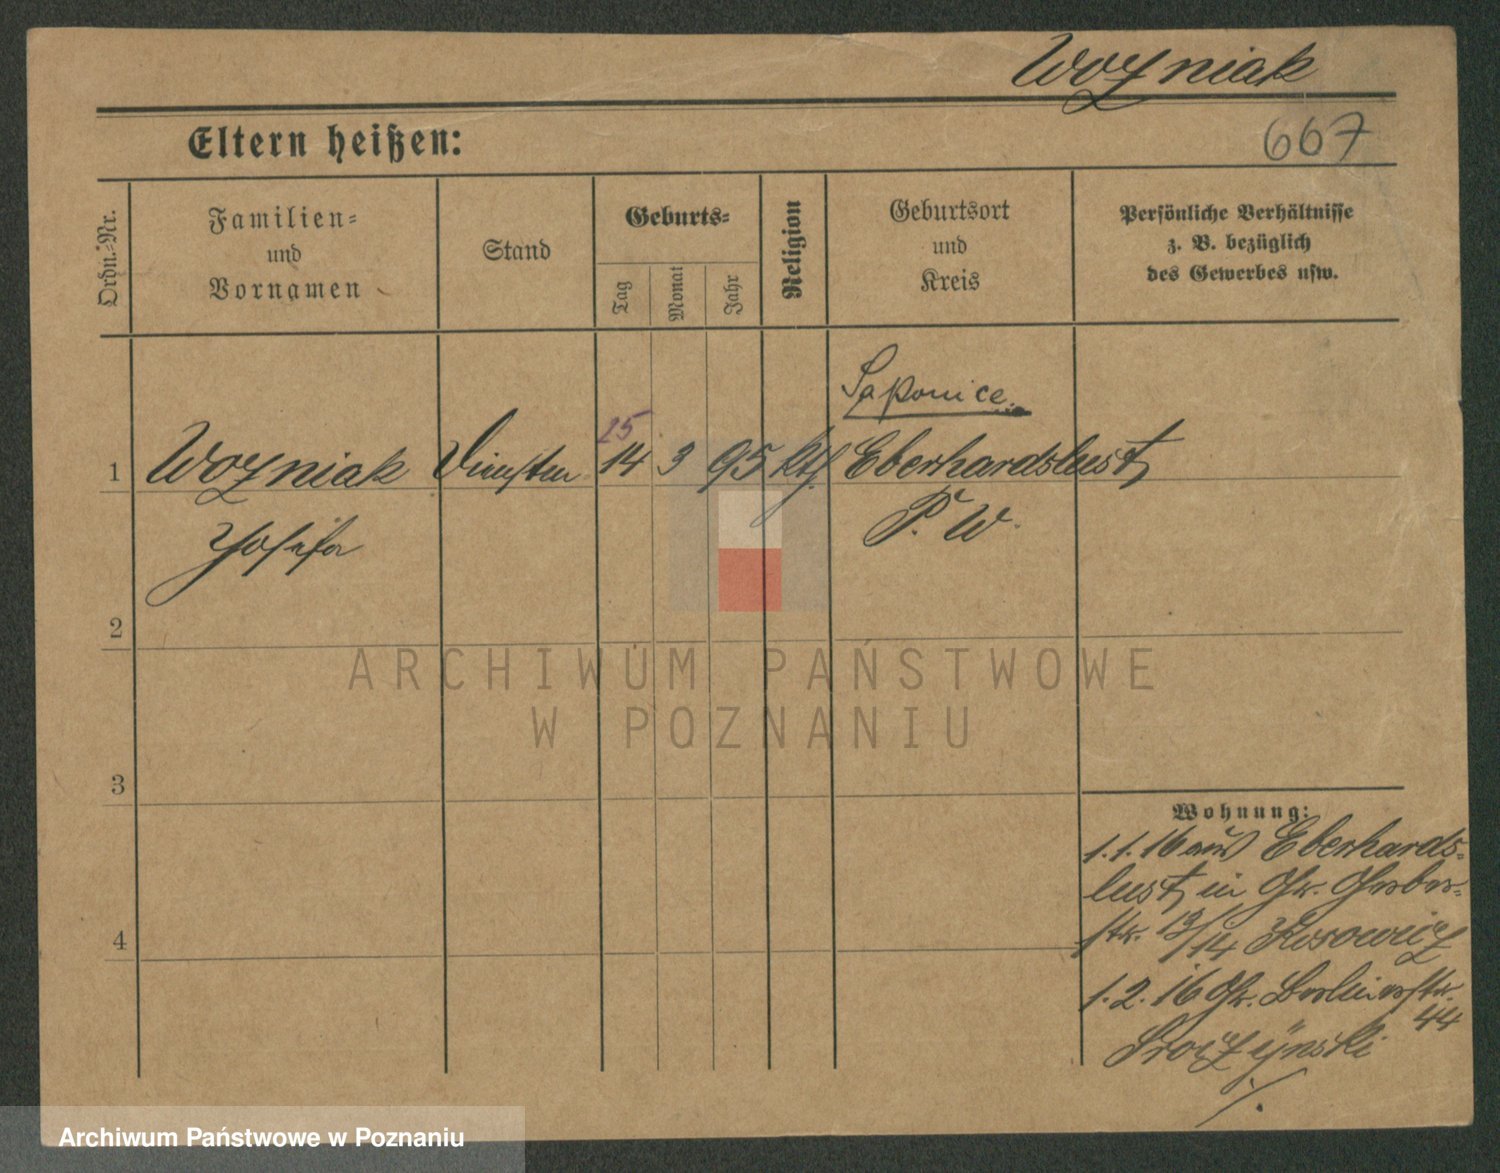 Wozniak
Eltern heißen:
667
Ordn.=Nr.
Familien=
und
Vornamen
Stand
Geburts=
Tag
Monat
Jahr
Religion
Geburtsort
und
Kreis
Persönliche Verhältnisse
z. B. bezüglich
des Gewerbes usw.
Saponice.
25
1 Wozniak 14 3 95 kth Eberhardslust
Josefa P. W.
2
ARCHIWUM PAŃSTWOWE
W POZNANIU
3
4
Wohnung:
1.1.16 aus Eberhards=
lust in Gr. Gerber=
str. 13/14
1.2.16 Gr. Berlinerstr.
44
Archiwum Państwowe w Poznaniu